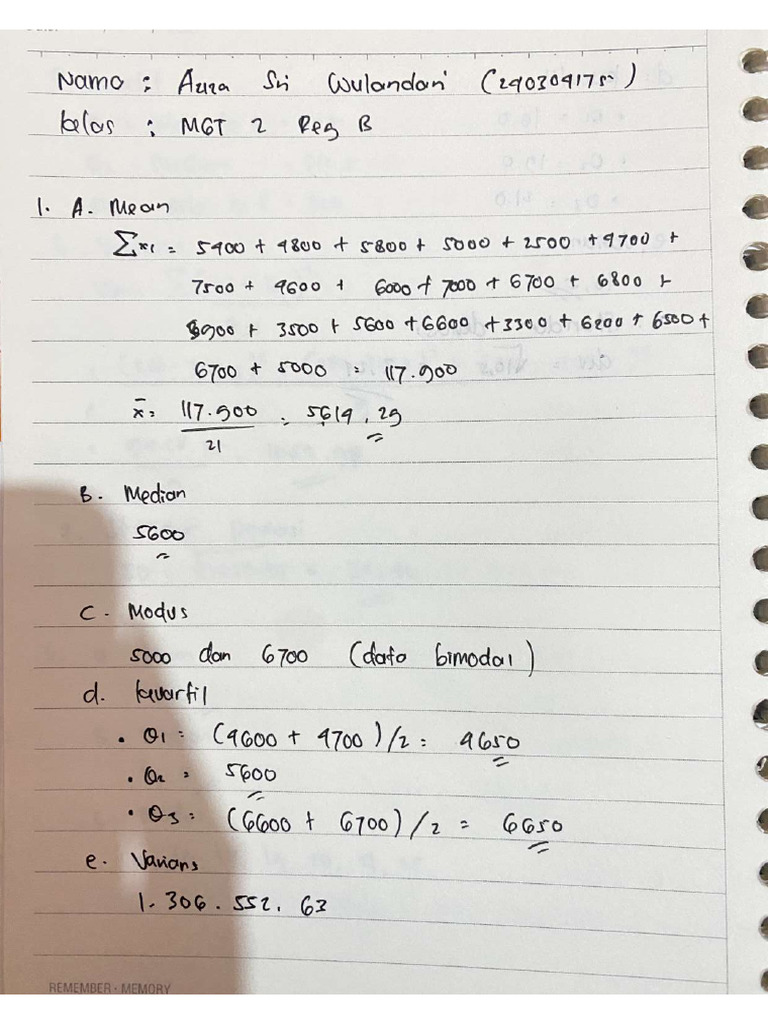 Nama : Aura Sri Wulandari (240304175)
Kelas : MGT 2 Reg B
1. A. Mean
∑x1 = 5400 + 4800 + 5800 + 5000 + 2500 + 4700 +
7500 + 4600 + 6000 + 7000 + 6700 + 6800 +
3900 + 3500 + 5600 + 6600 + 3300 + 6200 + 6500 +
6700 + 5000 = 117.900
x̄ = 117.900 / 21 = 5614,29
B. Median
5600
C. Modus
5000 dan 6700 (data bimodal)
d. kuartil
• Q1 = (4600 + 4700) / 2 = 4650
• Q2 = 5600
• Q3 = (6600 + 6700) / 2 = 6650
e. Varians
1.306.552,63
REMEMBER • MEMORY